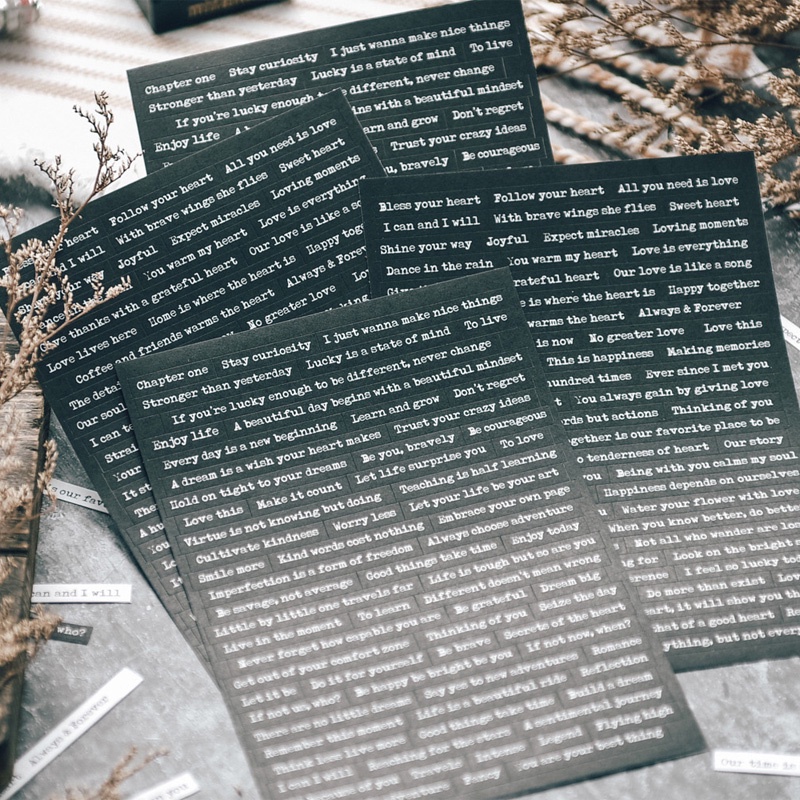 Chapter one Stay curiosity I just wanna make nice things
Stronger than yesterday Lucky is a state of mind To live
If you're lucky enough to be different, never change
Enjoy life ins with a beautiful mindset
arn and grow Don't regret
Trust your crazy ideas
u, bravely Be courageous
heart Follow your heart All you need is love
and I will With brave wings she flies Sweet heart
your way Joyful Expect miracles Loving moments
You warm my heart Love is everything
Give thanks with a grateful heart Our love is like a so
Love lives here Home is where the heart is Happy toge
Coffee and friends warms the heart Always & Forev
The detai No greater love
Our soul
I can to
Strai
Your
It st
The
A hu
You
Bless your heart Follow your heart All you need is love
I can and I will With brave wings she flies Sweet heart
Shine your way Joyful Expect miracles Loving moments
Dance in the rain You warm my heart Love is everything
rateful heart Our love is like a song
e is where the heart is Happy together
warms the heart Always & Forever
is now No greater love Love this
This is happiness Making memories
hundred times Ever since I met you
You always gain by giving love
rds but actions Thinking of you
gether is our favorite place to be
o tenderness of heart Our story
you Being with you calms my soul
Happiness depends on ourselves
Water your flower with love
When you know better, do bette
Not all who wander are los
g for Look on the bright s
rence I feel so lucky tod
Do more than exist Lov
art, it will show you th
hat of a good heart
ything, but not every
Chapter one Stay curiosity I just wanna make nice things
Stronger than yesterday Lucky is a state of mind To live
If you're lucky enough to be different, never change
Enjoy life A beautiful day begins with a beautiful mindset
Every day is a new beginning Learn and grow Don't regret
A dream is a wish your heart makes Trust your crazy ideas
Hold on tight to your dreams Be you, bravely Be courageous
Love this Make it count Let life surprise you To love
Virtue is not knowing but doing Teaching is half learning
Cultivate kindness Worry less Let your life be your art
Smile more Kind words cost nothing Embrace your own page
Imperfection is a form of freedom Always choose adventure
Be savage, not average Good things take time Enjoy today
Little by little one travels far Life is tough but so are you
Live in the moment To learn Different doesn't mean wrong
Never forget how capable you are Be grateful Dream big
Get out of your comfort zone Thinking of you Seize the day
Let it be Do it for yourself Be brave Secrets of the heart
If not us, who? Be happy be bright be you If not now, when?
There are no little dreams Say yes to new adventures Romance
Remember this moment Life is a beautiful ride Reflection
Think less live more Good things take time Build a dream
I can I will Reaching for the stars A sentimental journey
of you Travels Legend Flying high
Fancy You are your best thing
s our fav
can and I will
who?
Always & Forever
you
Our time is